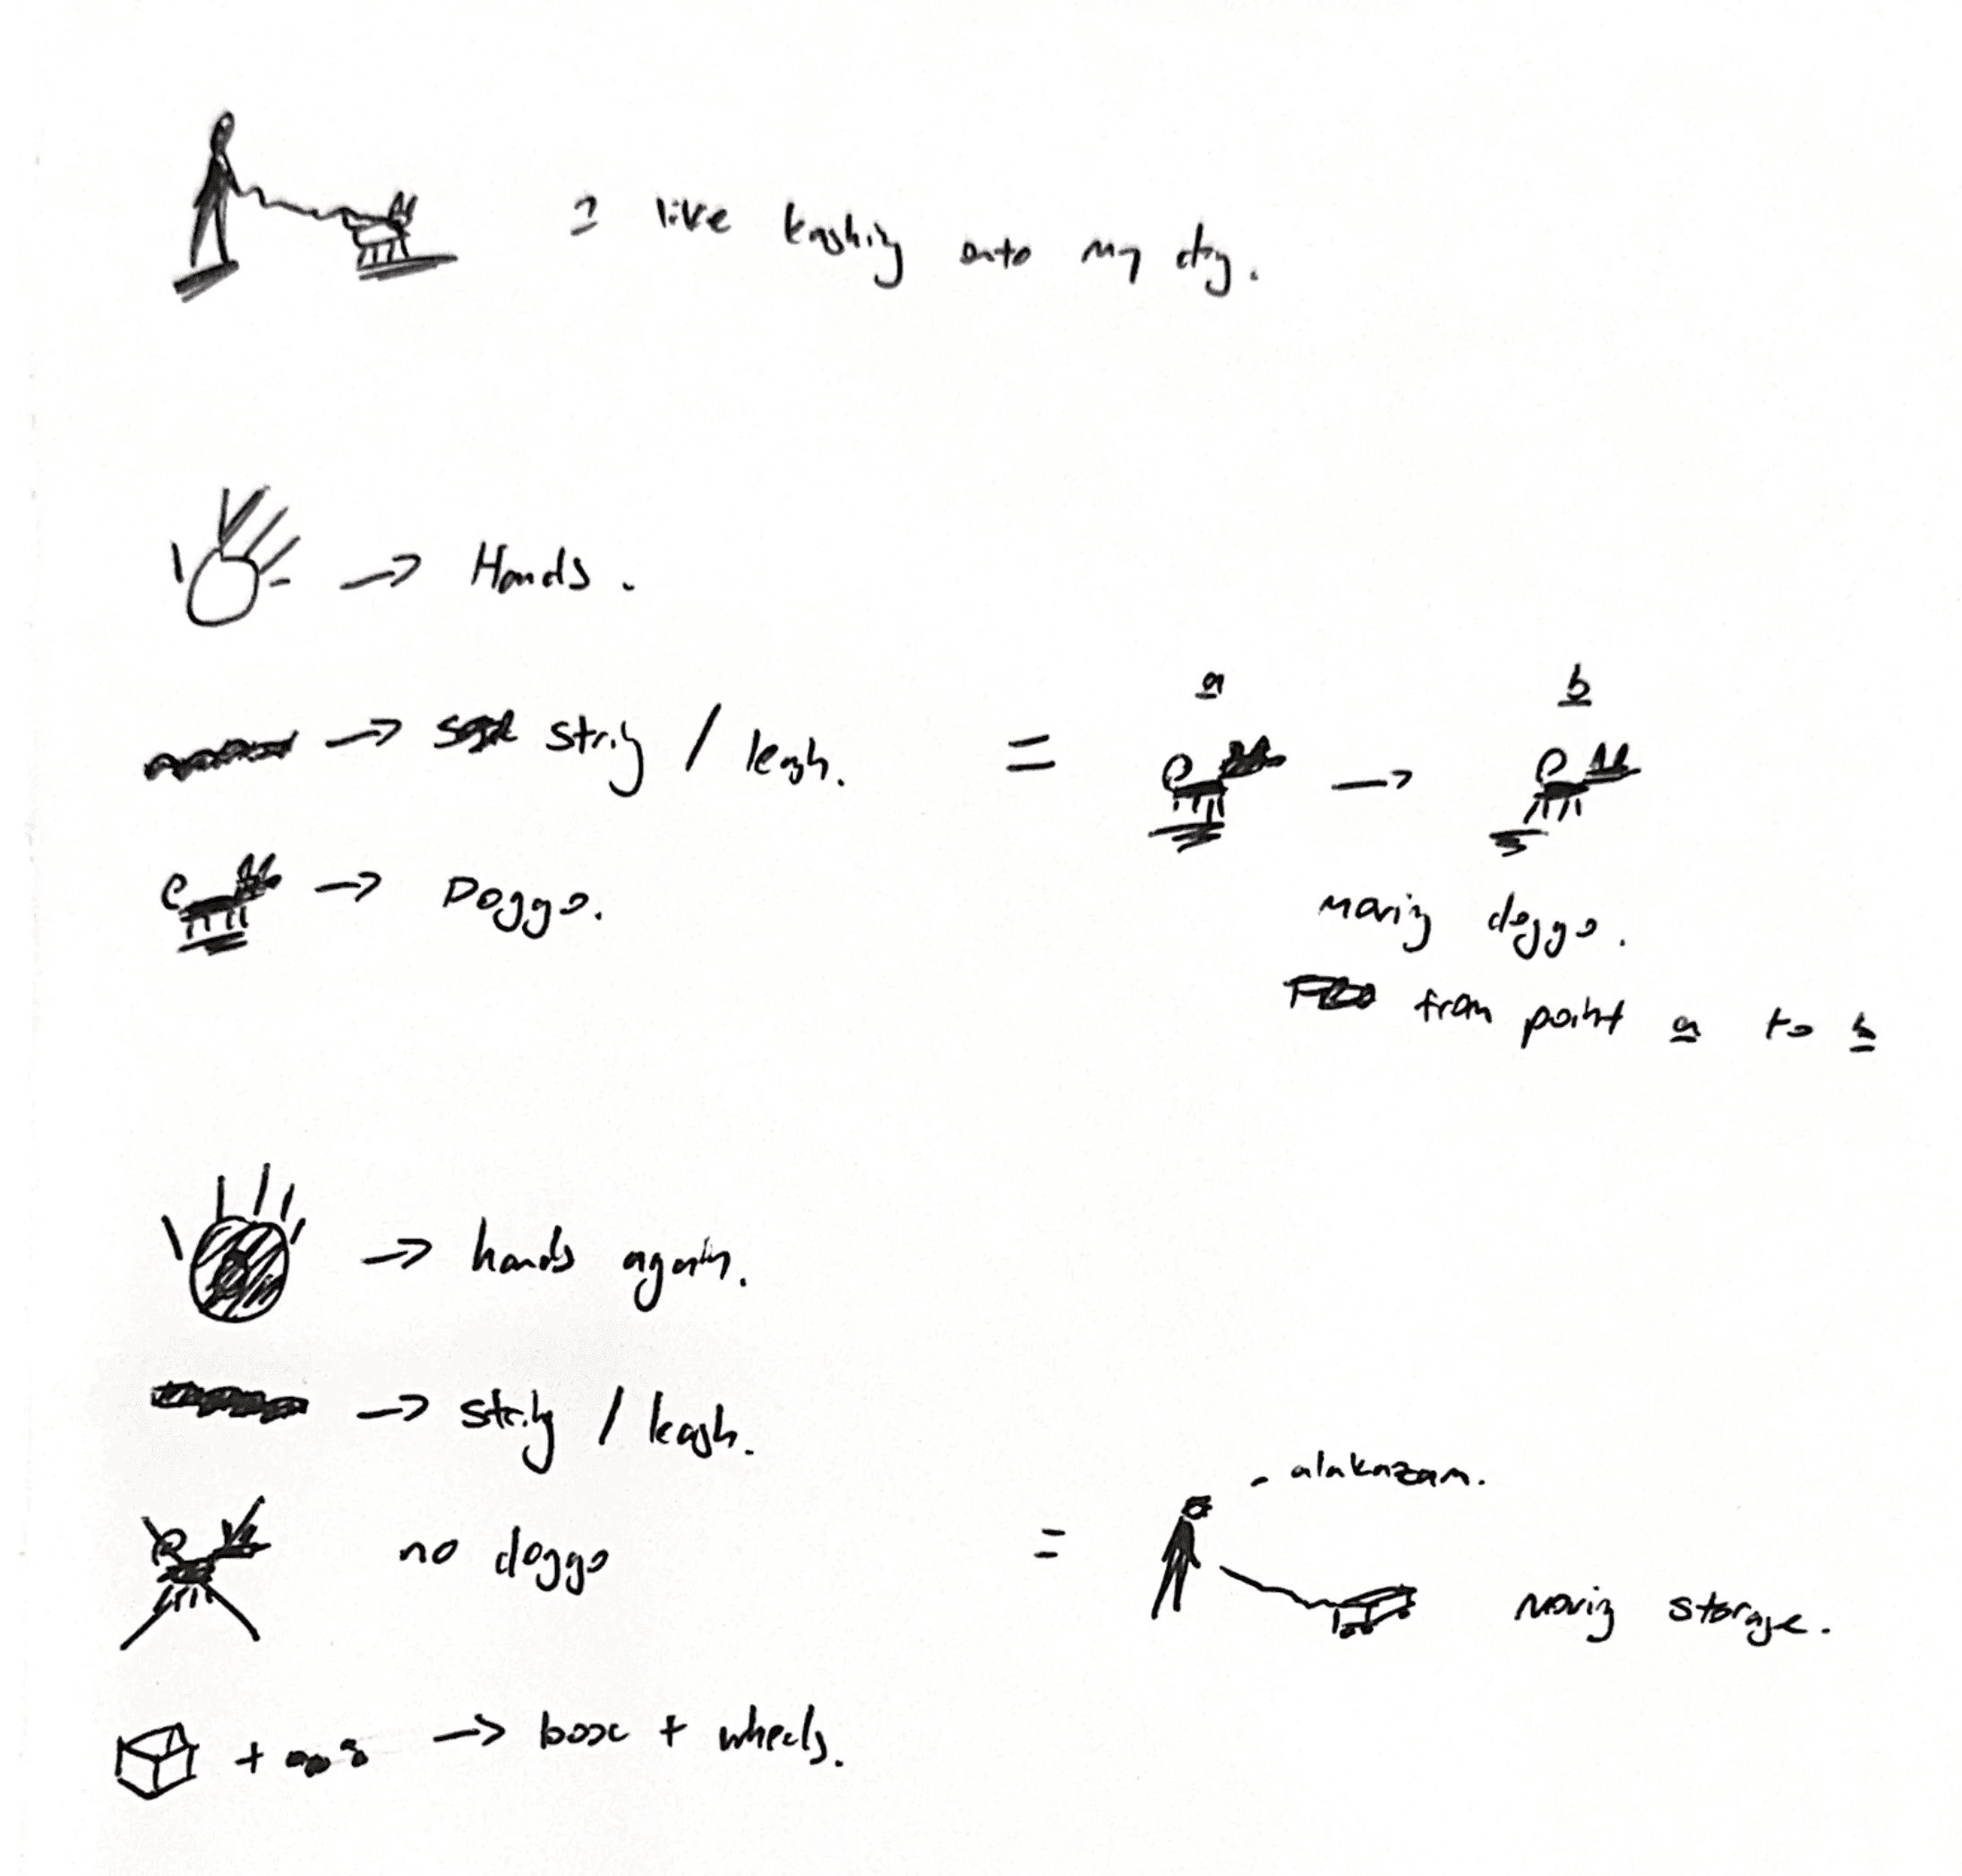 I like leashing onto my dog.
Hands.
string / leash.
Doggo.
=
a
b
moving doggo.
from point a to b
hands again.
string / leash.
no doggo
+
box + wheels.
=
- alakazam.
moving storage.